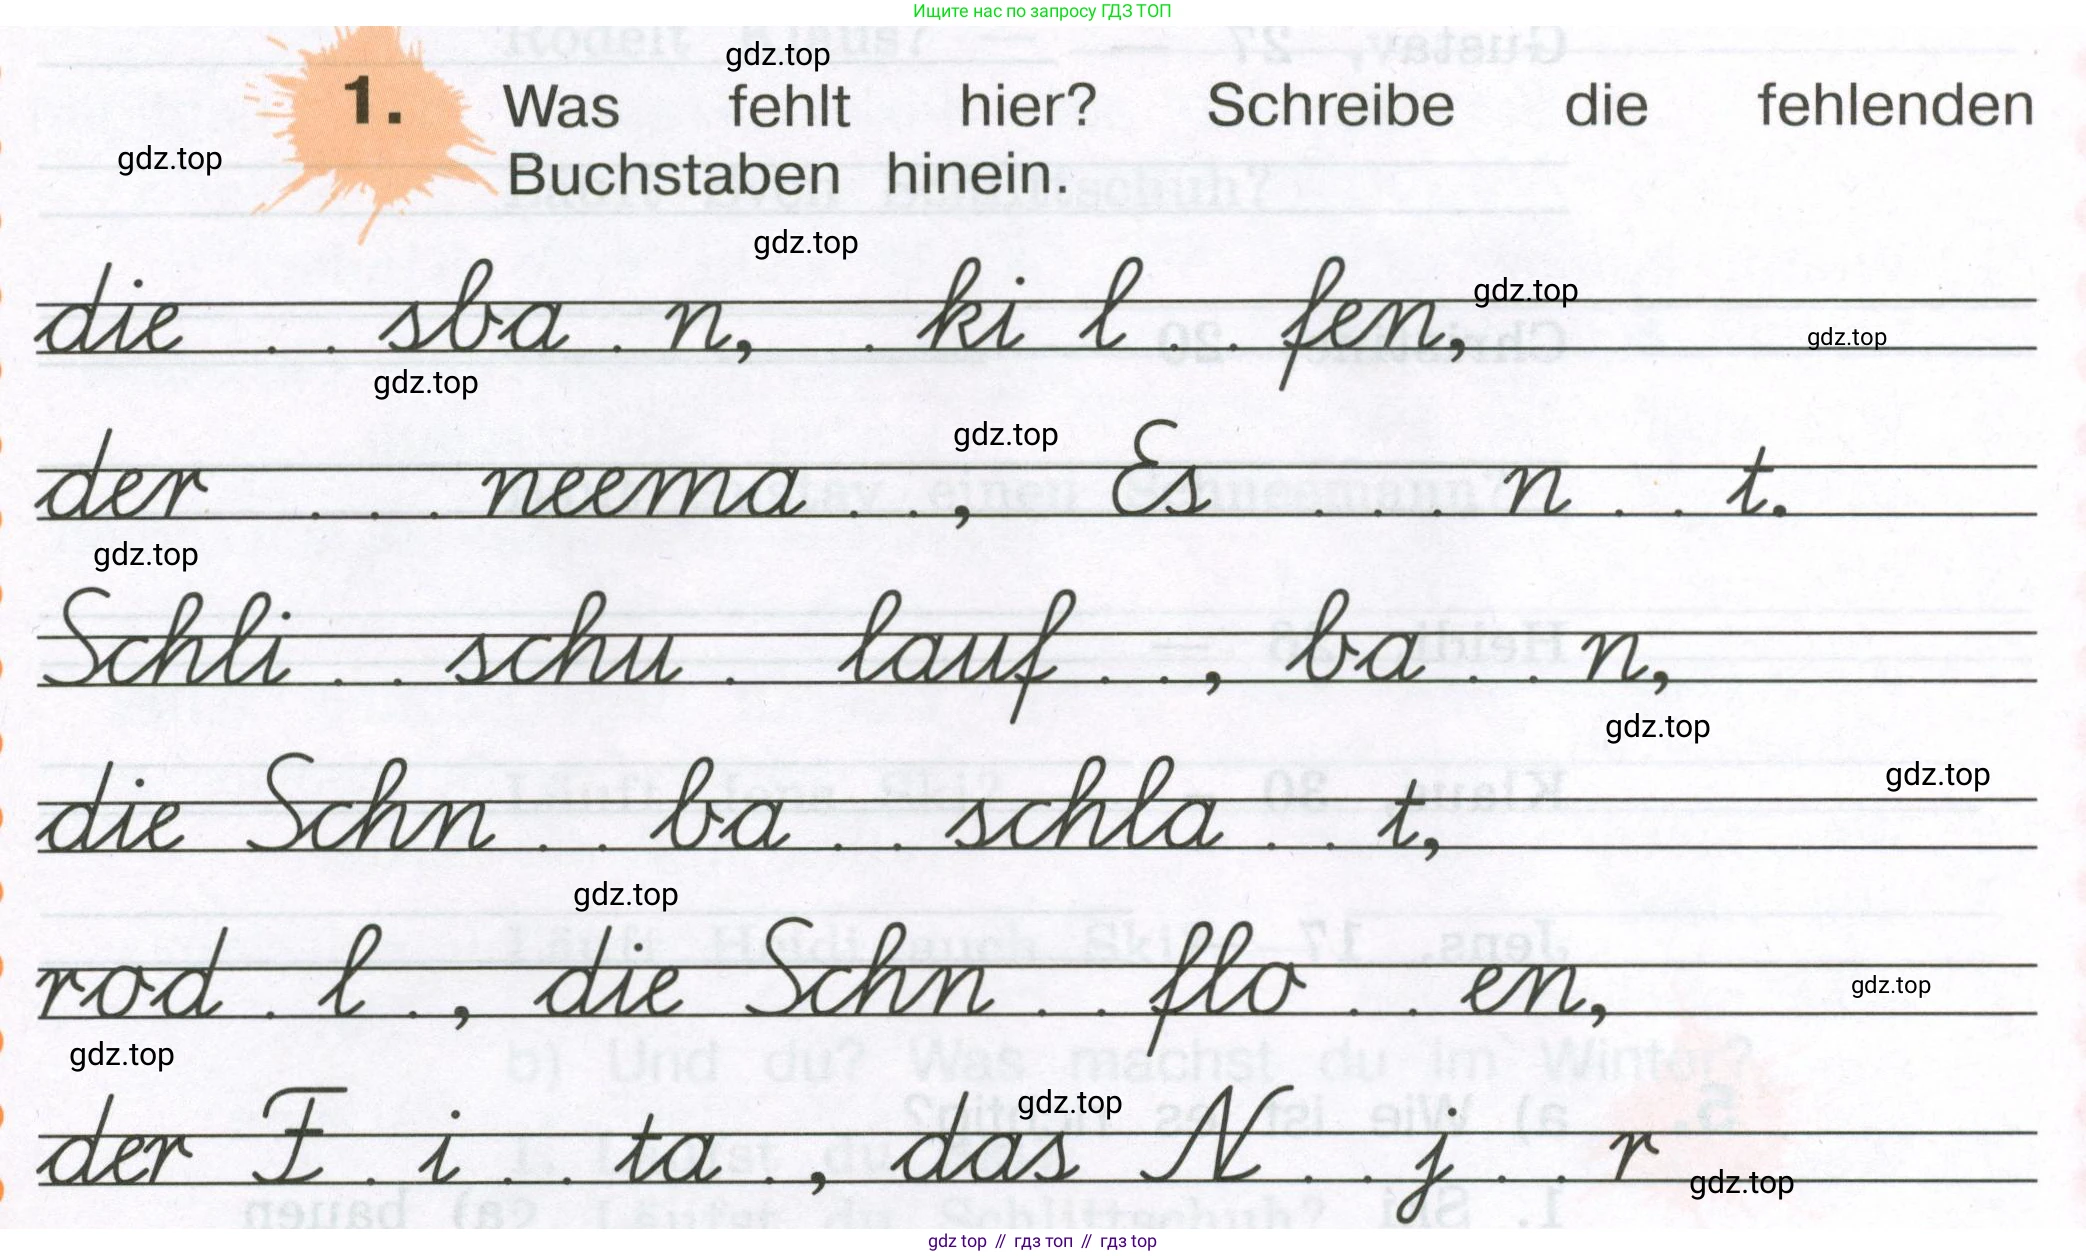 Ищите нас по запросу ГДЗ ТОП
gdz.top
1. Was fehlt hier? Schreibe die fehlenden
gdz.top
Buchstaben hinein.
gdz.top
die . . sba . n, . ki l . . fen,
gdz.top
gdz.top
gdz.top
gdz.top
der . . . neema . . , Es . . . n . . t.
gdz.top
Schli . . schu . lauf . . , ba . . n,
gdz.top
gdz.top
die Schn . . ba . . schla . . t,
gdz.top
rod . l . , die Schn . . flo . . en,
gdz.top
gdz.top
gdz.top
der F . i . . ta . , das N . . j . . r
gdz.top
gdz top // гдз топ // гдз top